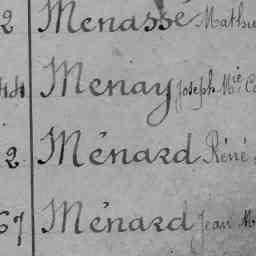 2 Menassé Mathu
44 Menay Joseph Mie C
2 Ménard Réné
67 Ménard Jean M